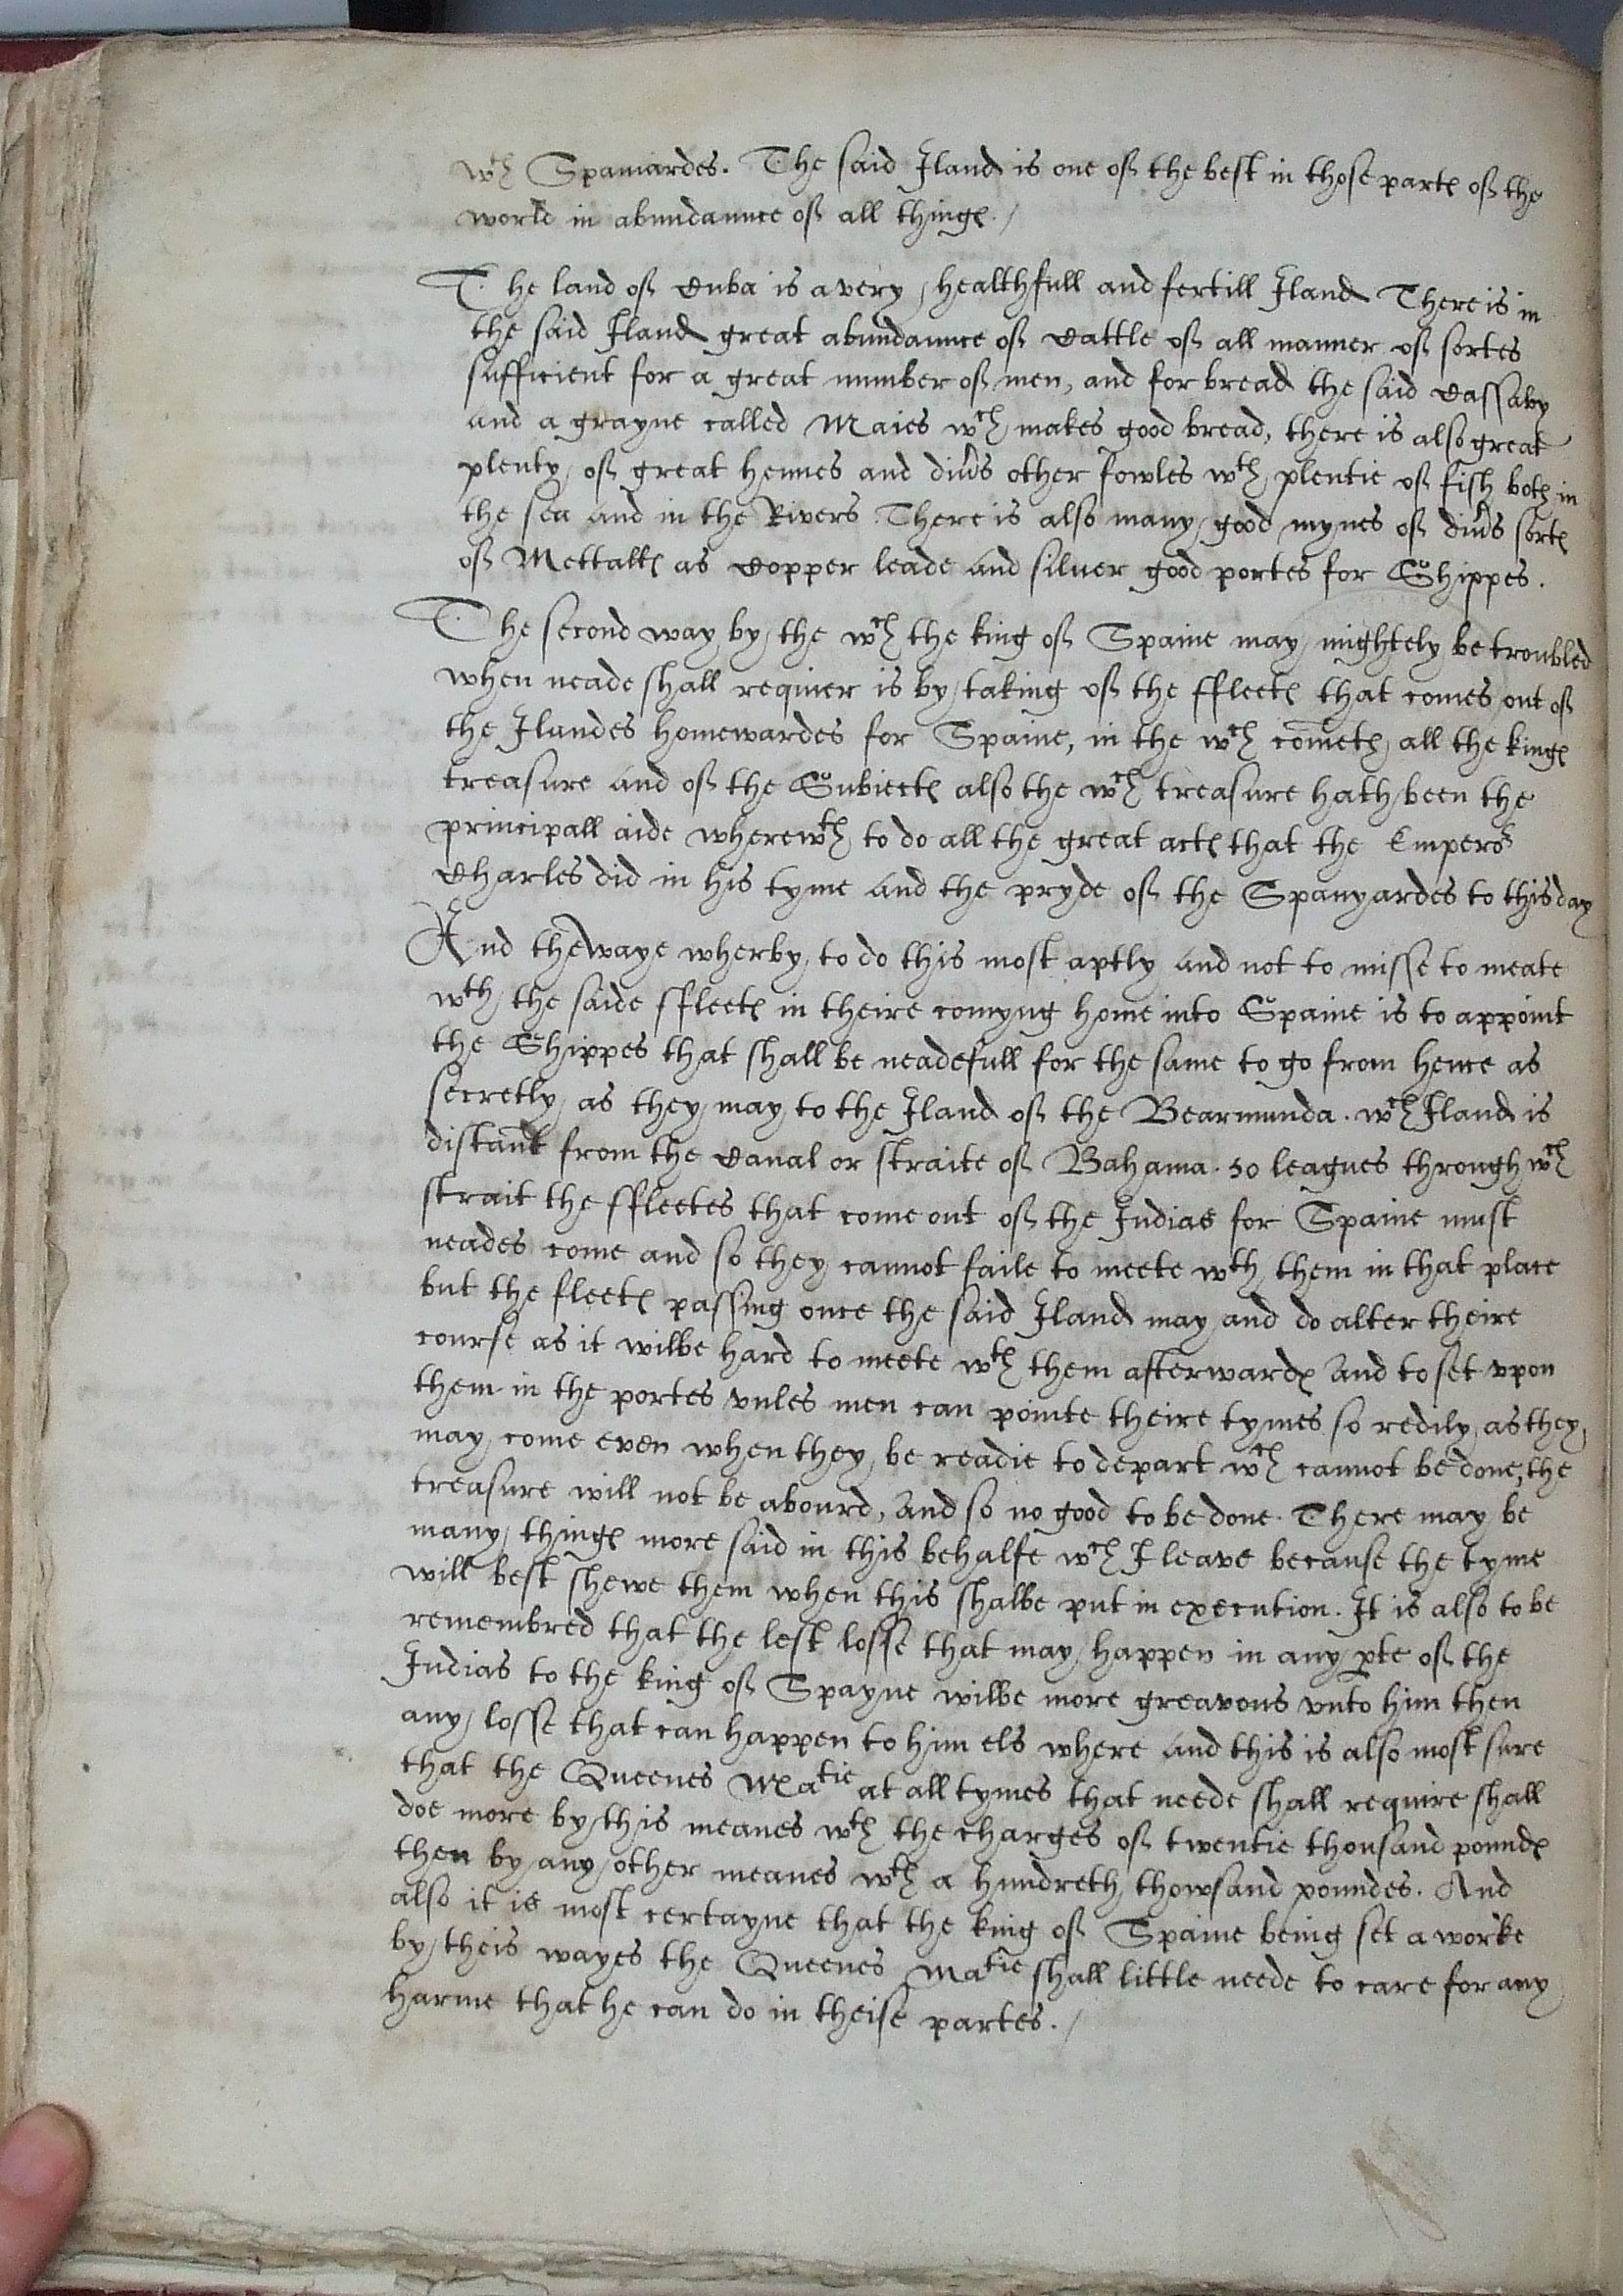 wth Spaniardes. The said Iland is one of the best in those partes of the
world in abundaunce of all thinges./
The land of Cuba is a very healthfull and fertill Iland There is in
the said Iland great abundaunce of Cattle of all manner of sortes
sufficient for a great number of men, and for bread the said Cassaby
and a grayne called Maies wch makes good bread, there is also great
plenty of great hennes and divrs other fowles wth plentie of fish both in
the sea and in the Rivers There is also many good mynes of divrs sortes
of Mettalls as Copper leade and silver good portes for Shippes.
The second way by the wch the king of Spaine may mightely be troubled
when neade shall requier is by taking of the ffleetes that comes out of
the Ilandes homewardes for Spaine, in the wch cometh all the kinges
treasure and of the Subiectes also the wch treasure hath been the
principall aide wherewth to do all the great actes that the Emperor
Charles did in his tyme and the pryde of the Spanyardes to this day
And the waye wherby to do this most aptly and not to misse to meate
wth the saide ffleetes in theire comyng home into Spaine is to appoint
the Shippes that shall be neadefull for the same to go from hence as
secretly as they may to the Iland of the Bearmunda. wch Iland is
distant from the Canal or straite of Bahama. 50 leagues through wch
strait the ffleetes that come out of the Indias for Spaine must
neades come and so they cannot faile to meete wth them in that place
but the fleetes passing once the said Iland may and do alter theire
course as it wilbe hard to meete wth them afterwardes And to set vpon
them in the portes vnles men can pointe theire tymes so redily as they
may come even when they be readie to depart wch cannot be done, the
treasure will not be abourd, And so no good to be done. There may be
many thinges more said in this behalfe wch I leave because the tyme
will best shewe them when this shalbe put in execution. It is also to be
remembred that the lest losse that may happen in any pte of the
Indias to the king of Spayne wilbe more greavous vnto him then
any losse that can happen to him els where and this is also most sure
that the Queenes Matie at all tymes that neede shall require shall
doe more by this meanes wth the charges of twentie thousand poundes
then by any other meanes wth a hundreth thowsand poundes. And
also it is most certayne that the king of Spaine being set a worke
by theis wayes the Queenes Matie shall little neede to care for any
harme that he can do in theise partes./